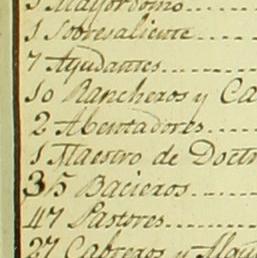 1 Mayordomo
1 Sobresaliente
7 Ayudantes
10 Rancheros y Ca
2 Abentadores
1 Maestro de Doctr
35 Bacieros
47 Pastores
27 Cabreros y